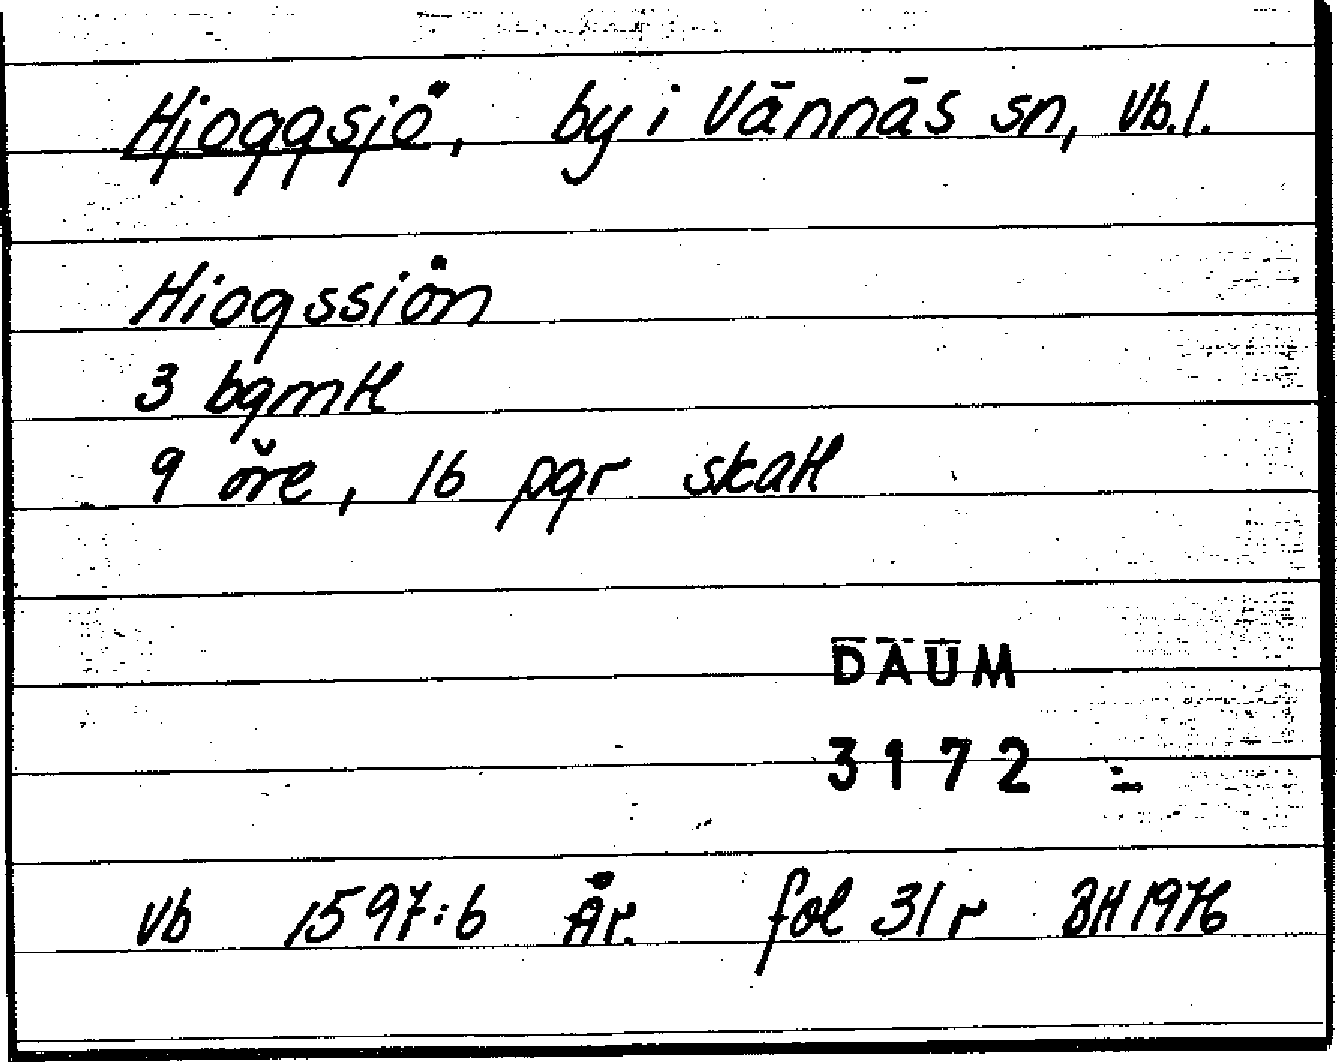 Hjoggsjö, by i Vännäs sn, Vb.l.
Hiogssiön
3 bgmtl
9 öre, 16 pgr skatt
DAUM
3172
Vb 1597:6 År. fol 31 r BH 1976